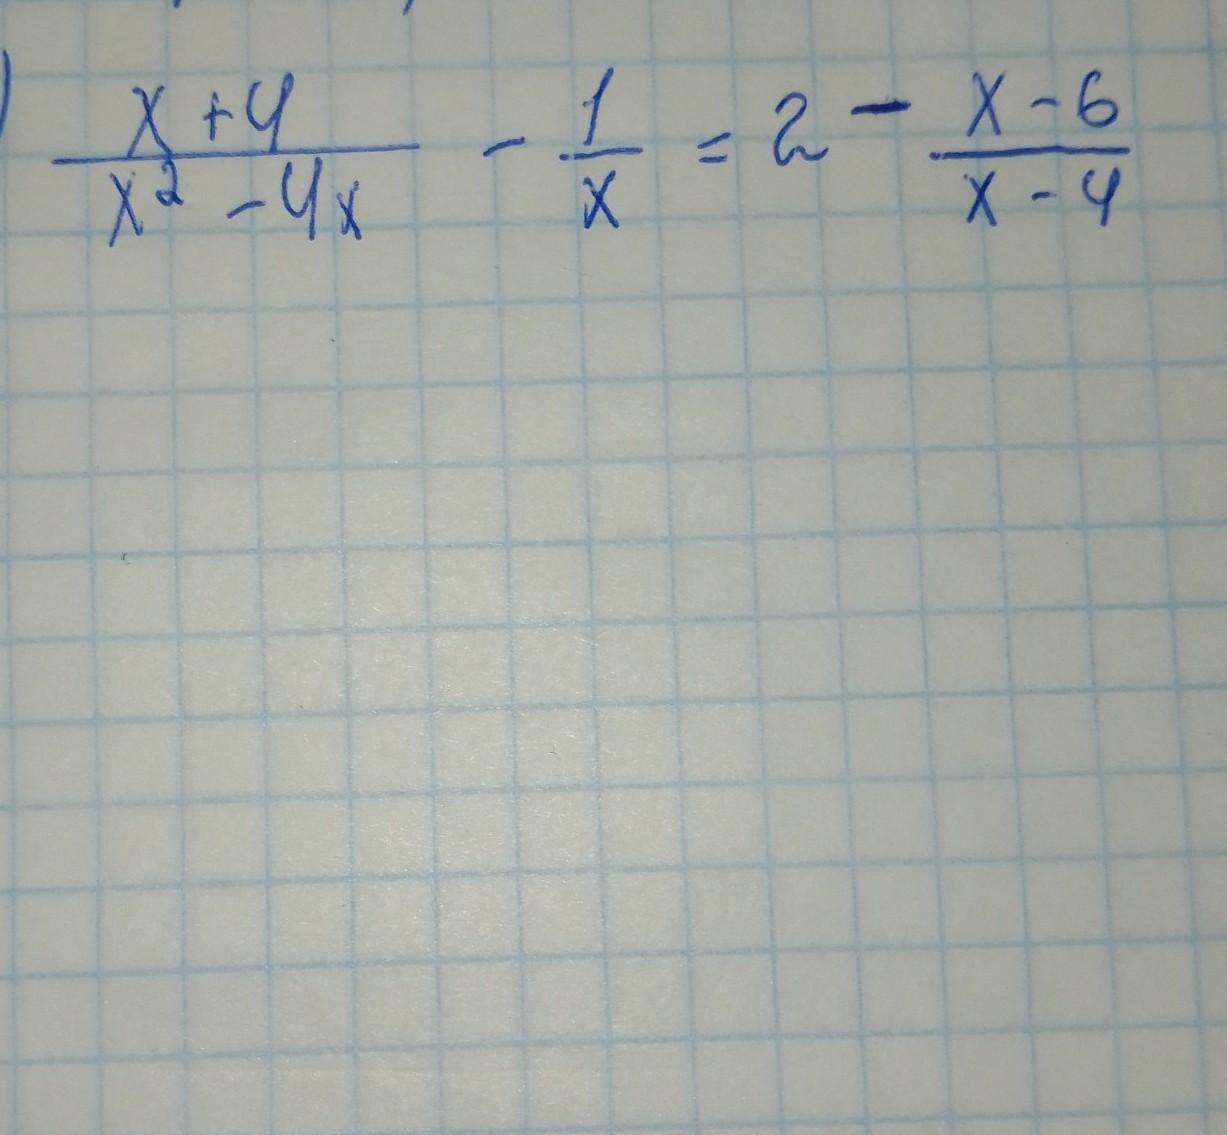 ) \frac{x+4}{x^2-4x} - \frac{1}{x} = 2 - \frac{x-6}{x-4}